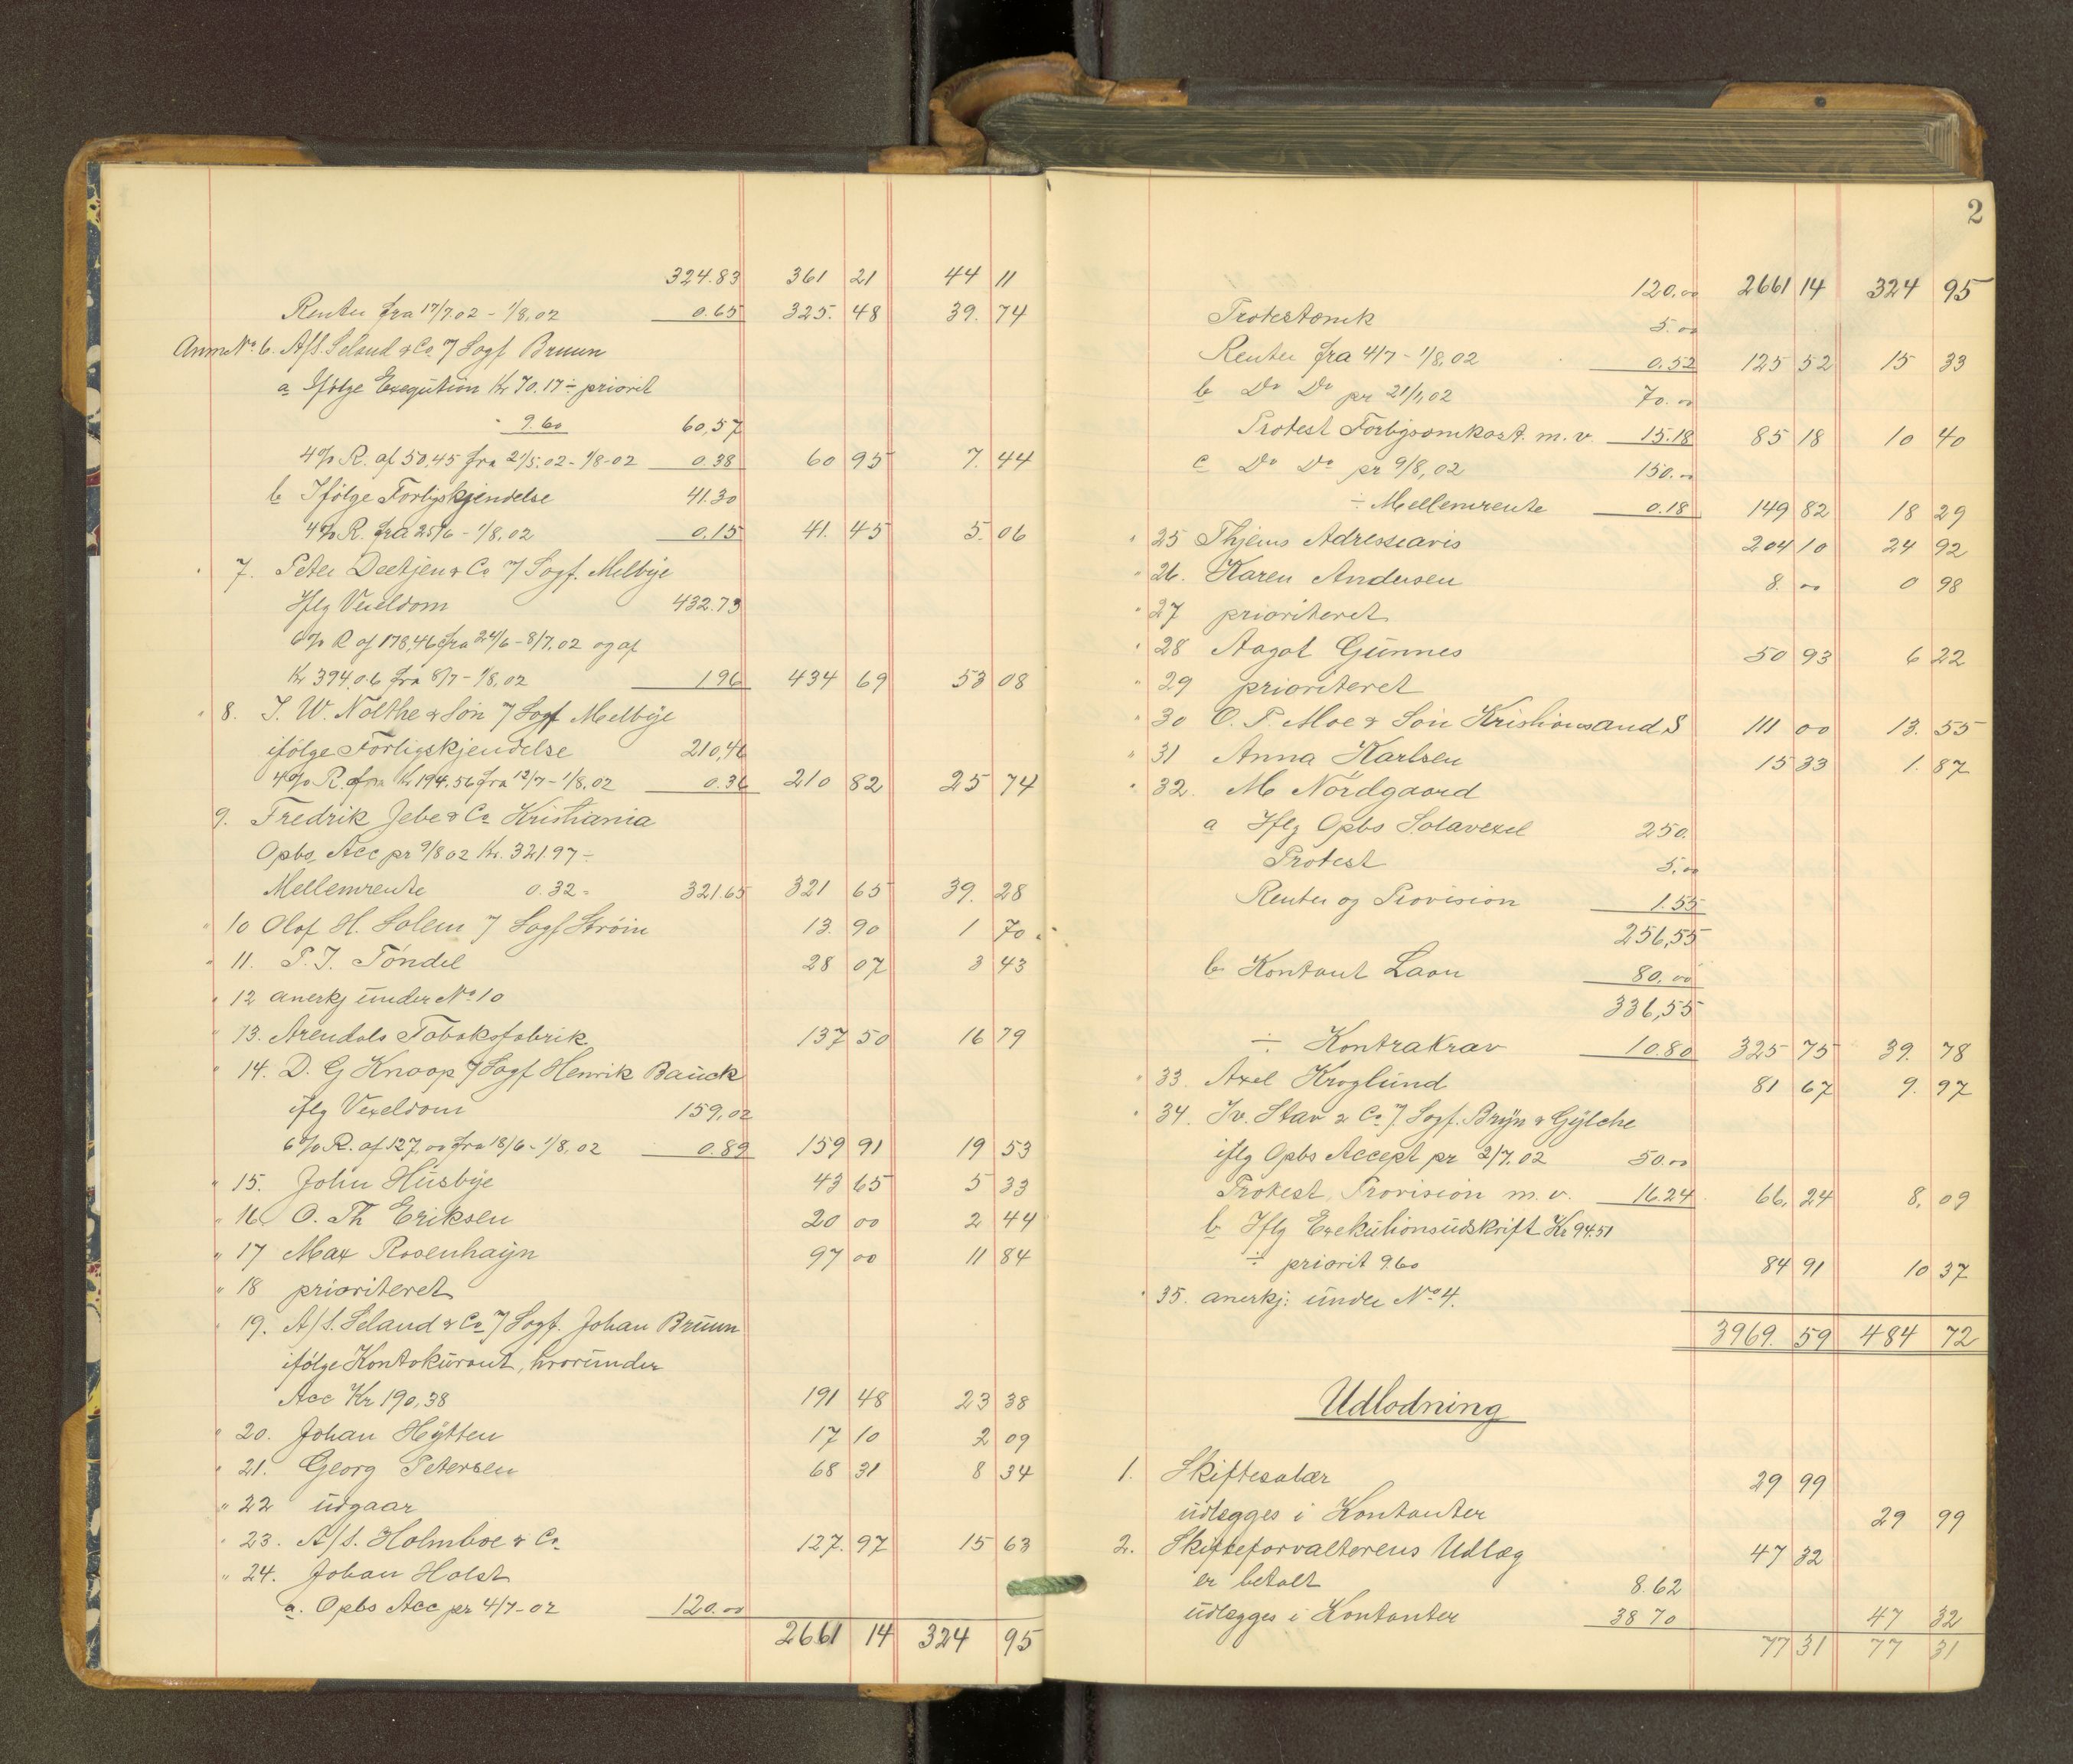 324.83 361 21 44 11
Renter fra 17/7.02 - 1/8,02 0.65 325. 48 39. 74
Anm No. 6. A/S. Seland & Co. v/ Sagf Bruun
a Ifølge Exegution Kr 70.17 ÷ priorit
" 9.60 60,57
4% R. af 50,45 fra 21/5.02 - 1/8-02 0.38 60 95 7. 44
b Ifølge Forligskjendelse 41.30
4% R. fra 25/6 - 1/8,02 0,15 41. 45 5. 06
" 7. Peter Deetjen & Co v/ Sagf. Melbye
Iflg Vexeldom 432.73
6% R af 178,46 fra 24/6 - 8/7,02 og af
Kr 394,06 fra 8/7 - 1/8,02 1.96 434 69 53 08
" 8. J. W. Nolthe & Søn v/ Sagf Melbye
ifølge Forligskjendelse 210,46
4% R. fra Kr 194.56 fra 13/7 - 1/8,02 0.36 210 82 25 74
9. Fredrik Jebe & Co Kristiania
Opbs. Acc pr 9/8 02 Kr. 321.97 ÷
Mellemrente 0.32 = 321.65 321 65 39. 28
" 10 Olaf H. Solem v/ Sagf Strøm 13. 90 1 70
" 11. P. J. Tøndel 28 07 3 43
" 12 anerkj under No 10
" 13. Arendals Tobaksfabrik 137 50 16 79
" 14. D. G Knoop v/ Sagf Henrik Bauck
iflg Vexeldom 159,02
6% R. af 127,00 fra 18/6 - 1/8,02 0.89 159 91 19 53
" 15. John Husbye 43 65 5 33
" 16 O. Th Eriksen 20 00 2 44
" 17 Max Rosenhayn 97 00 11 84
" 18 prioriteret
" 19. A/S. Seland & Co v/ Sagf. Johan Bruun
ifølge Kontokurant, hvorunder
Acc Kr 190,38 191 48 23 38
" 20. Johan Hytten 17 10 2 09
" 21. Georg Petersen 68 31 8 34
" 22 udgaar
" 23. A/S. Holmboe & Co 127. 97 15 63
" 24. Johan Holst
a. Opbs Acc pr 4/7-02 120.00
2661 14 324 95
2
120.00 2661 14 324 95
Protestomk 5.00
Renter fra 4/7 - 1/8,02 0.52 125 52 15 33
b Do Do pr 21/1,02 70.00
Protest Forligsomkost. m. v. 15.18 85 18 10 40
c Do Do pr 9/8,02 150.00
÷ Mellemrente 0.18 149 82 18 29
" 25 Thjems Adresseavis 204 10 24 92
" 26. Karen Andersen 8. 00 0 98
" 27 prioriteret
" 28 Aagot Gunnes 50 93 6 22
" 29 prioriteret
" 30 O. P. Moe & Søn Kristiansand S 111 00 13. 55
" 31 Anna Karlsen 15 33 1. 87
" 32. M Nordgaard
a Iflg Opbs Solavexel 250.
Protest 5.00
Renter og Provision 1.55
256,55
b Kontant Laan 80,00
336,55
÷ Kontrakrav 10.80 325 75 39. 78
" 33. Axel Kroglund 81 67 9. 97
" 34. Iv. Stav & Co v/ Sagf. Bryn & Gylche
iflg Opbs Accept pr 2/7.02 50.00
Protest, Provision m. v. 16.24 66. 24 8, 09
b Iflg Exekutionsudskrift Kr 94.51
÷ priorit 9.60 84 91 10 37
" 35. anerkj: under No 4.
3969. 59 484 72
Udlodning
1. Skiftesalær 29 99
udlægges i Kontanter 29 99
2. Skifteforvalterens Udlæg 47 32
er betalt 8.62
udlægges i Kontanter 38 70 47 32
77 31 77 31